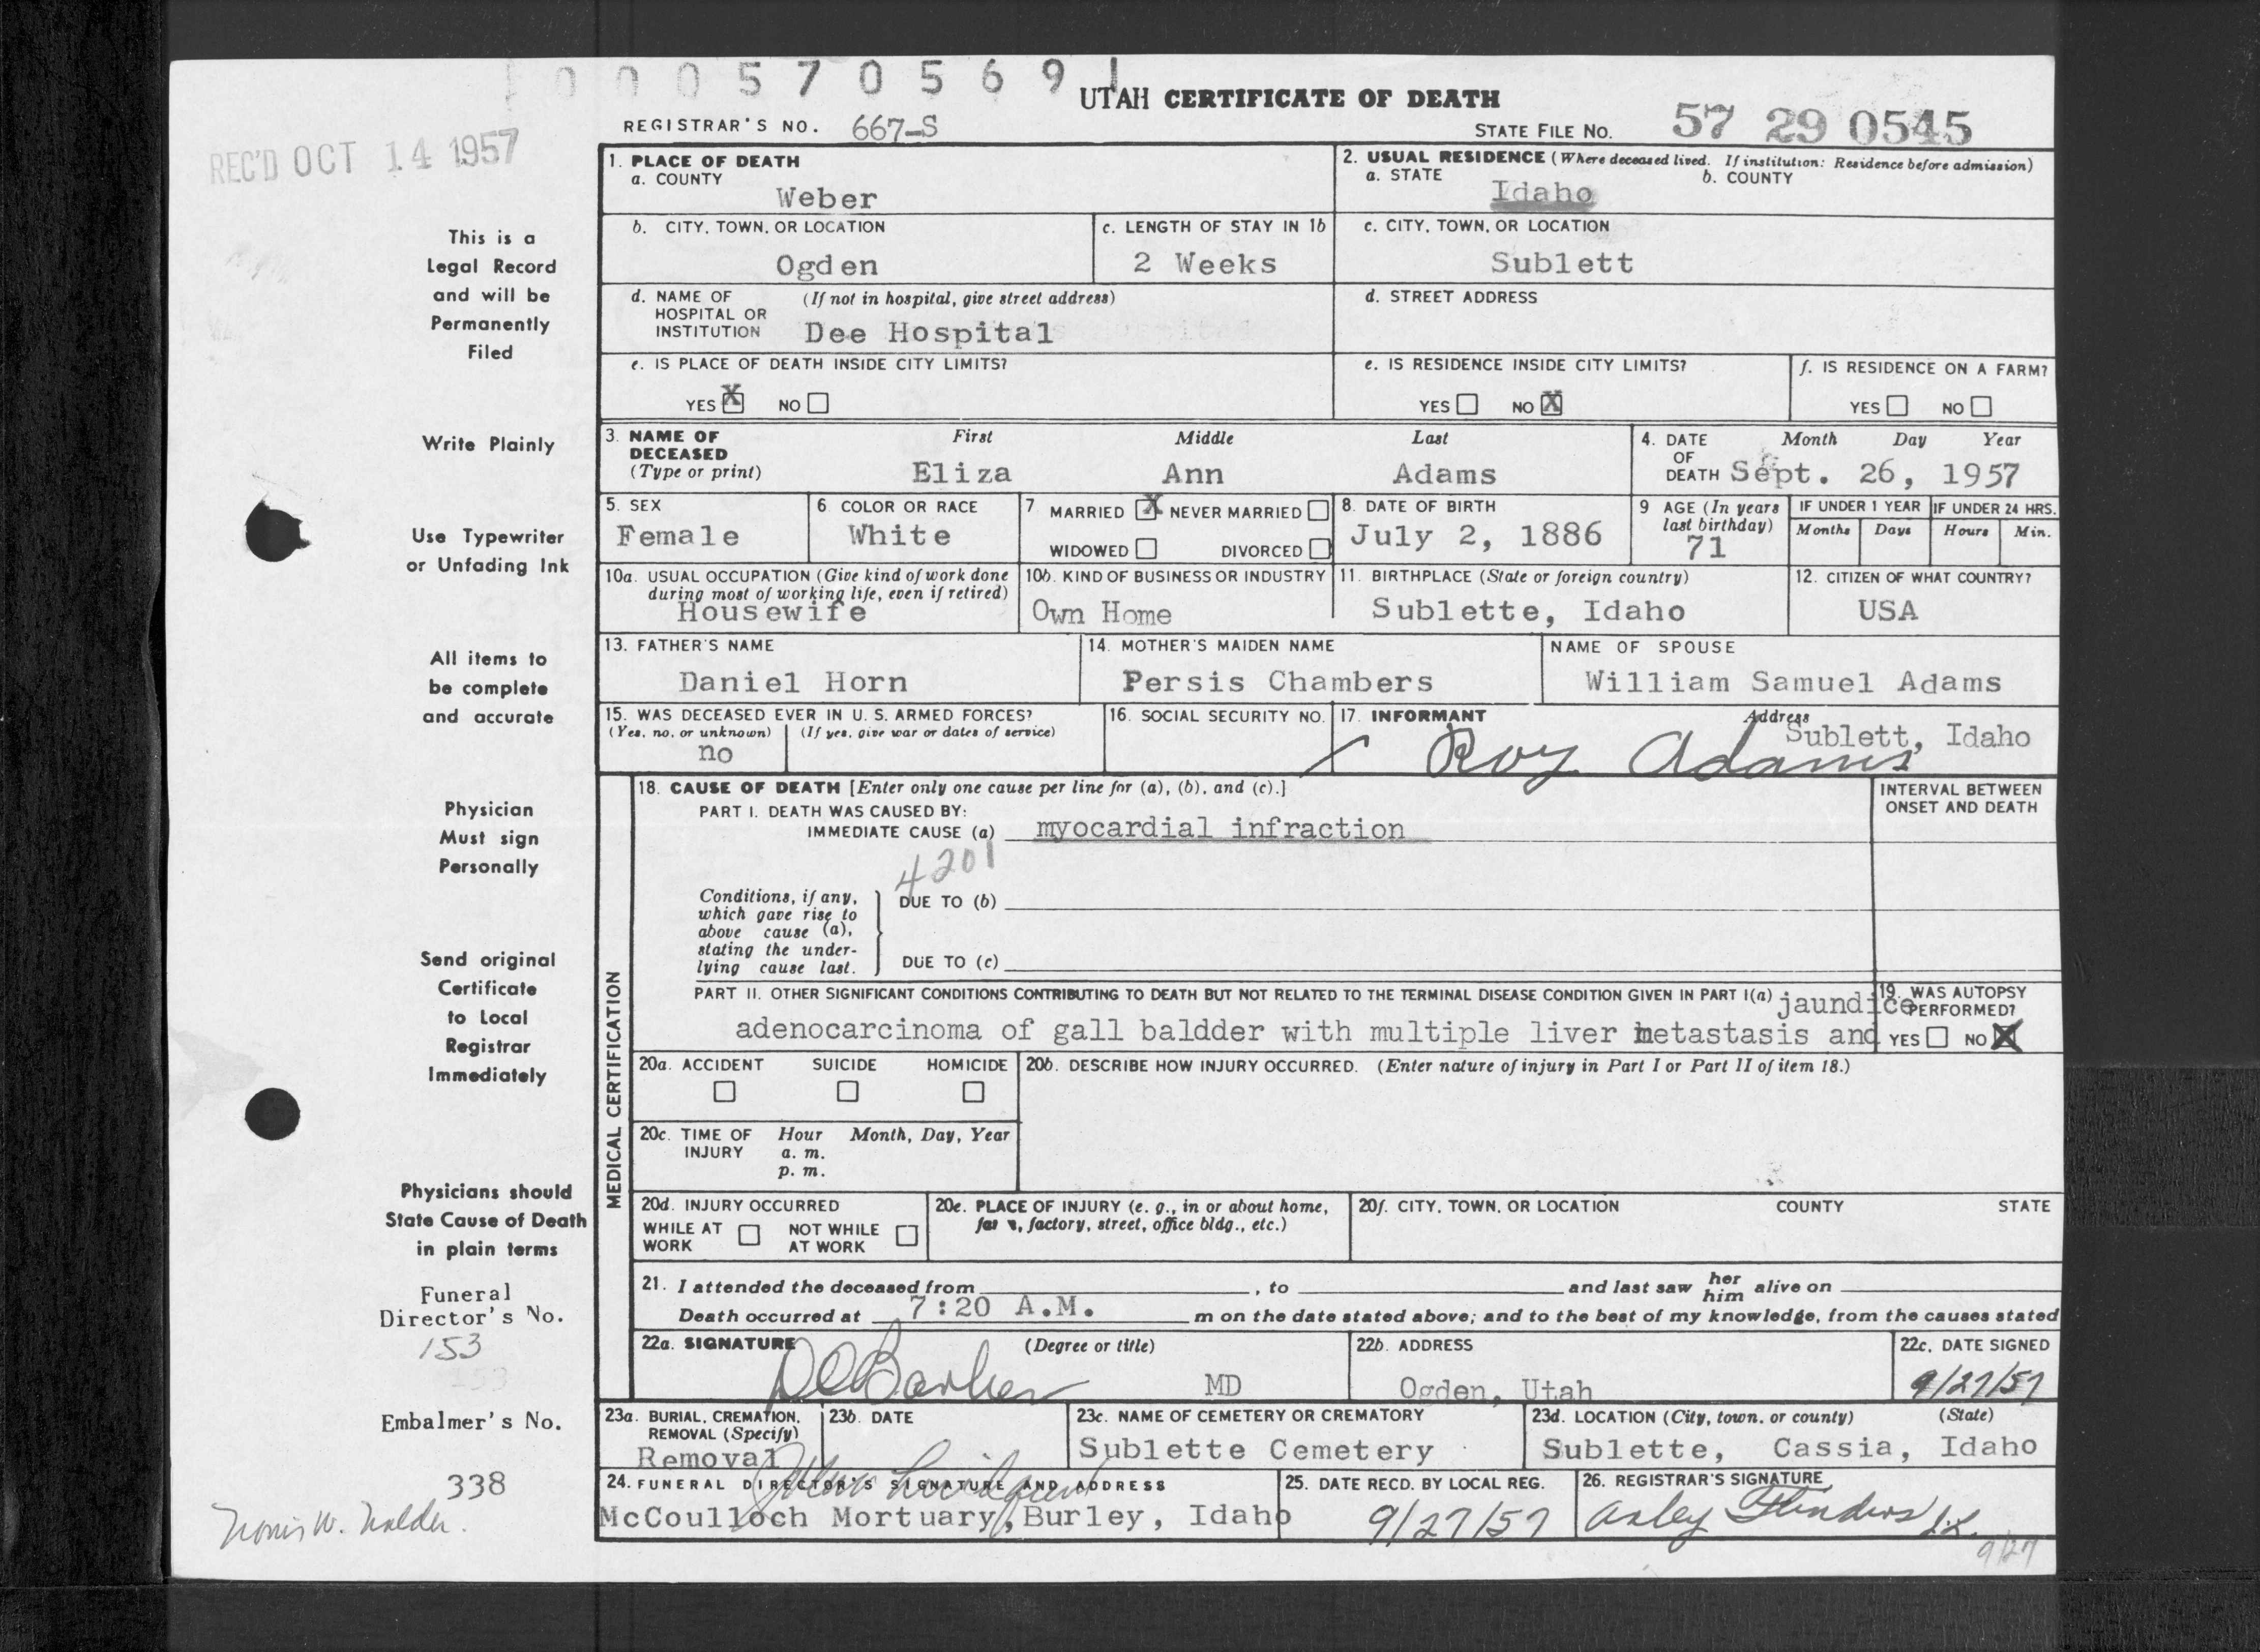 0 0 0 5 7 0 5 6 9 1
UTAH CERTIFICATE OF DEATH
REGISTRAR'S NO. 667-S
STATE FILE NO. 57 29 0545
REC'D OCT 14 1957
1. PLACE OF DEATH
a. COUNTY
Weber
2. USUAL RESIDENCE (Where deceased lived. If institution: Residence before admission)
a. STATE b. COUNTY
Idaho
b. CITY, TOWN, OR LOCATION
Ogden
c. LENGTH OF STAY IN 1b
2 Weeks
c. CITY, TOWN, OR LOCATION
Sublett
d. NAME OF HOSPITAL OR INSTITUTION (If not in hospital, give street address)
Dee Hospital
d. STREET ADDRESS
e. IS PLACE OF DEATH INSIDE CITY LIMITS?
YES X NO
e. IS RESIDENCE INSIDE CITY LIMITS?
YES NO X
f. IS RESIDENCE ON A FARM?
YES NO
3. NAME OF DECEASED (Type or print)
First Middle Last
Eliza Ann Adams
4. DATE OF DEATH Month Day Year
Sept. 26, 1957
5. SEX
Female
6. COLOR OR RACE
White
7. MARRIED X NEVER MARRIED
WIDOWED DIVORCED
8. DATE OF BIRTH
July 2, 1886
9 AGE (In years last birthday)
71
IF UNDER 1 YEAR
Months Days
IF UNDER 24 HRS.
Hours Min.
10a. USUAL OCCUPATION (Give kind of work done during most of working life, even if retired)
Housewife
10b. KIND OF BUSINESS OR INDUSTRY
Own Home
11. BIRTHPLACE (State or foreign country)
Sublette, Idaho
12. CITIZEN OF WHAT COUNTRY?
USA
13. FATHER'S NAME
Daniel Horn
14. MOTHER'S MAIDEN NAME
Persis Chambers
NAME OF SPOUSE
William Samuel Adams
15. WAS DECEASED EVER IN U. S. ARMED FORCES?
(Yes, no, or unknown) (If yes, give war or dates of service)
no
16. SOCIAL SECURITY NO.
17. INFORMANT Address
Roy Adams Sublett, Idaho
18. CAUSE OF DEATH [Enter only one cause per line for (a), (b), and (c).]
PART I. DEATH WAS CAUSED BY:
IMMEDIATE CAUSE (a) myocardial infraction
4201
INTERVAL BETWEEN ONSET AND DEATH
Conditions, if any,
which gave rise to
above cause (a),
stating the under-
lying cause last.
DUE TO (b)
DUE TO (c)
PART II. OTHER SIGNIFICANT CONDITIONS CONTRIBUTING TO DEATH BUT NOT RELATED TO THE TERMINAL DISEASE CONDITION GIVEN IN PART I(a) jaundice
adenocarcinoma of gall baldder with multiple liver metastasis and
19. WAS AUTOPSY PERFORMED?
YES NO X
MEDICAL CERTIFICATION
20a. ACCIDENT SUICIDE HOMICIDE
20b. DESCRIBE HOW INJURY OCCURRED. (Enter nature of injury in Part I or Part II of item 18.)
20c. TIME OF INJURY Hour Month, Day, Year
a. m.
p. m.
20d. INJURY OCCURRED
WHILE AT WORK NOT WHILE AT WORK
20e. PLACE OF INJURY (e. g., in or about home, farm, factory, street, office bldg., etc.)
20f. CITY, TOWN, OR LOCATION COUNTY STATE
21. I attended the deceased from , to and last saw her him alive on
Death occurred at 7:20 A.M. m on the date stated above; and to the best of my knowledge, from the causes stated
22a. SIGNATURE (Degree or title)
D C Barker MD
22b. ADDRESS
Ogden, Utah
22c. DATE SIGNED
9/27/57
23a. BURIAL, CREMATION, REMOVAL (Specify)
Removal
23b. DATE
23c. NAME OF CEMETERY OR CREMATORY
Sublette Cemetery
23d. LOCATION (City, town, or county) (State)
Sublette, Cassia, Idaho
24. FUNERAL DIRECTOR'S SIGNATURE AND ADDRESS
McCoulloch Mortuary, Burley, Idaho
25. DATE RECD. BY LOCAL REG.
9/27/57
26. REGISTRAR'S SIGNATURE
Flinders
9/27
This is a
Legal Record
and will be
Permanently
Filed
Write Plainly
Use Typewriter
or Unfading Ink
All items to
be complete
and accurate
Physician
Must sign
Personally
Send original
Certificate
to Local
Registrar
Immediately
Physicians should
State Cause of Death
in plain terms
Funeral
Director's No.
153
153
Embalmer's No.
338